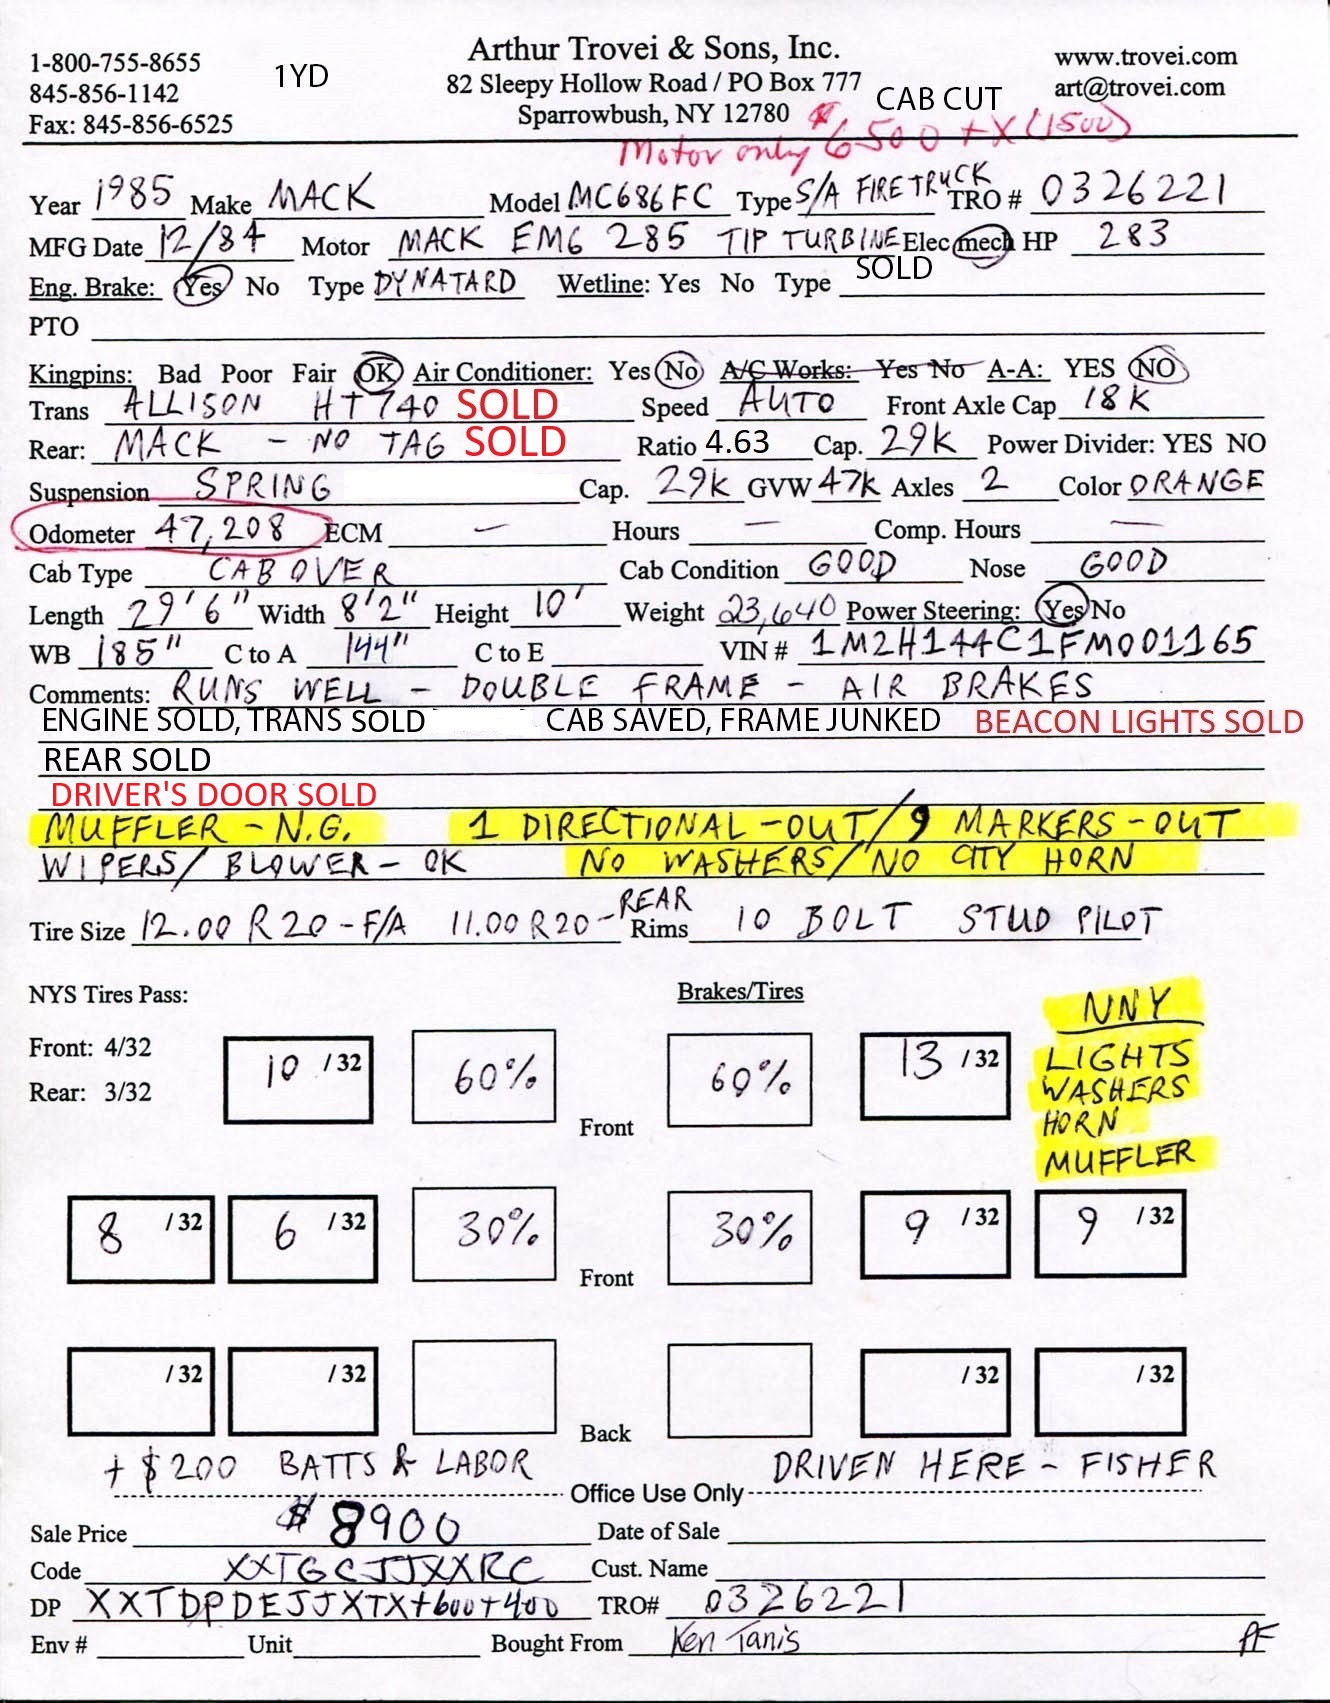 1-800-755-8655
845-856-1142
Fax: 845-856-6525
1YD
Arthur Trovei & Sons, Inc.
82 Sleepy Hollow Road / PO Box 777
Sparrowbush, NY 12780
www.trovei.com
art@trovei.com
CAB CUT
Motor only $6500 + X (1500)
Year 1985 Make MACK Model MC686FC Type S/A FIRETRUCK TRO # 0326221
MFG Date 12/84 Motor MACK EM6 285 TIP TURBINE Elec mech HP 283
SOLD
Eng. Brake: Yes No Type DYNATARD Wetline: Yes No Type
PTO
Kingpins: Bad Poor Fair OK Air Conditioner: Yes No A/C Works: Yes No A-A: YES NO
Trans ALLISON HT740 SOLD Speed AUTO Front Axle Cap 18K
Rear: MACK - NO TAG SOLD Ratio 4.63 Cap. 29K Power Divider: YES NO
Suspension SPRING Cap. 29K GVW 47K Axles 2 Color ORANGE
Odometer 47,208 ECM — Hours — Comp. Hours —
Cab Type CABOVER Cab Condition GOOD Nose GOOD
Length 29'6" Width 8'2" Height 10' Weight 23,640 Power Steering: Yes No
WB 185" C to A 144" C to E VIN # 1M2H144C1FM001165
Comments: RUNS WELL - DOUBLE FRAME - AIR BRAKES
ENGINE SOLD, TRANS SOLD CAB SAVED, FRAME JUNKED BEACON LIGHTS SOLD
REAR SOLD
DRIVER'S DOOR SOLD
MUFFLER - N.G. 1 DIRECTIONAL - OUT/9 MARKERS - OUT
WIPERS/BLOWER - OK NO WASHERS/NO CITY HORN
Tire Size 12.00 R 20 - F/A 11.00 R 20 - REAR Rims 10 BOLT STUD PILOT
NYS Tires Pass:
Brakes/Tires
NNY
Front: 4/32
Rear: 3/32
10 /32 60% Front 60% 13 /32
LIGHTS
WASHERS
HORN
MUFFLER
8 /32 6 /32 30% Front 30% 9 /32 9 /32
/32 /32 Back /32 /32
+ $200 BATTS & LABOR DRIVEN HERE - FISHER
Office Use Only
Sale Price $8900 Date of Sale
Code XXTGCJJXXRC Cust. Name
DP XXTDPDEJJXTX+600+400 TRO# 0326221
Env # Unit Bought From Ken Tanis AF